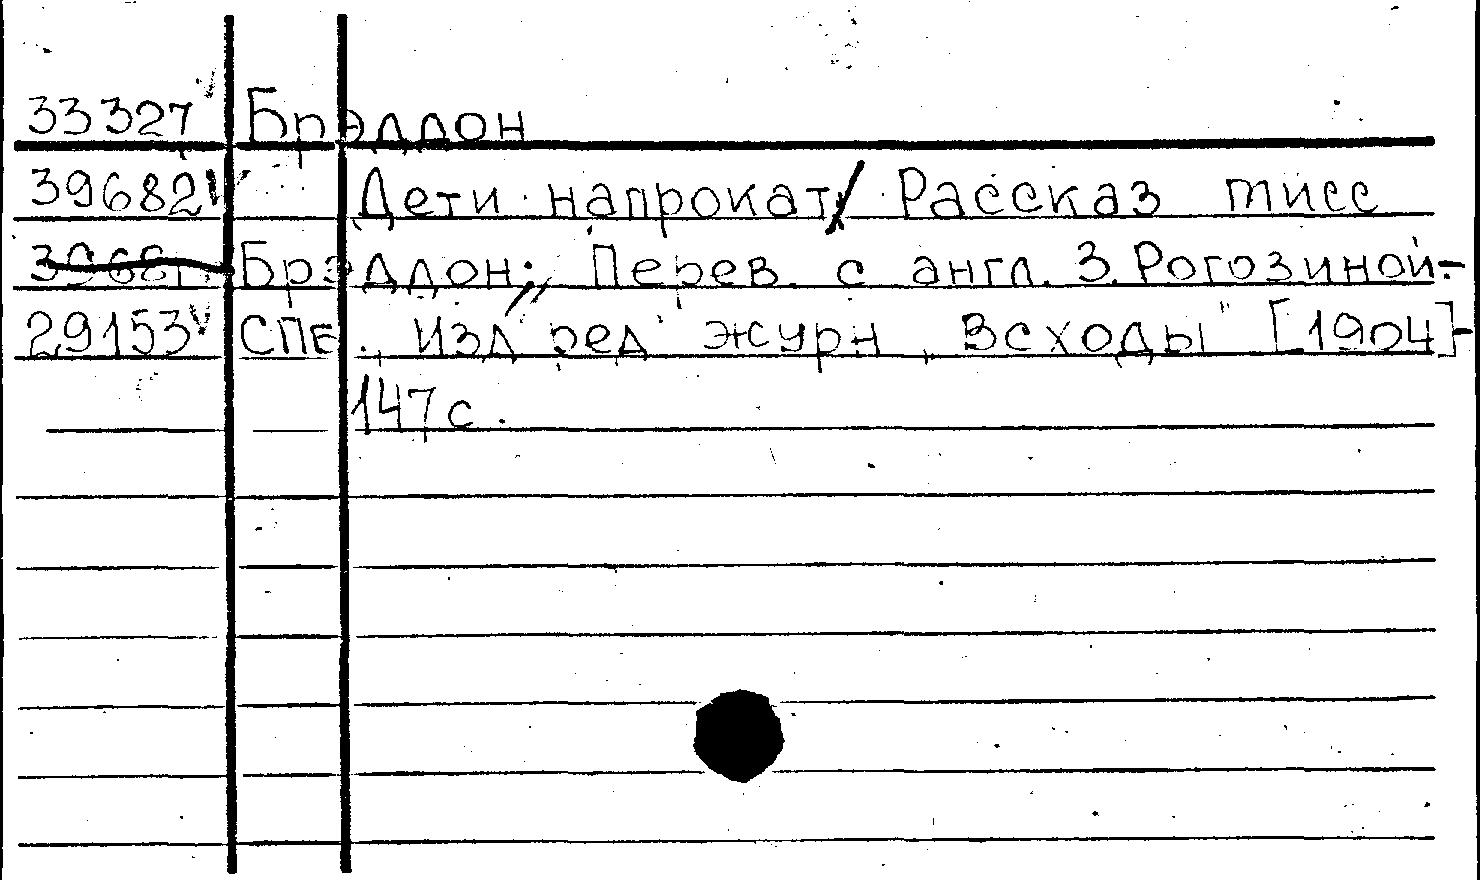 33327 Брэддон
39682 Дети напрокат / Рассказ мисс
Брэддон; Перев. с англ. З. Рогозиной.-
29153 СПБ., Изд ред журн „Всходы" [1904]-
147 с.